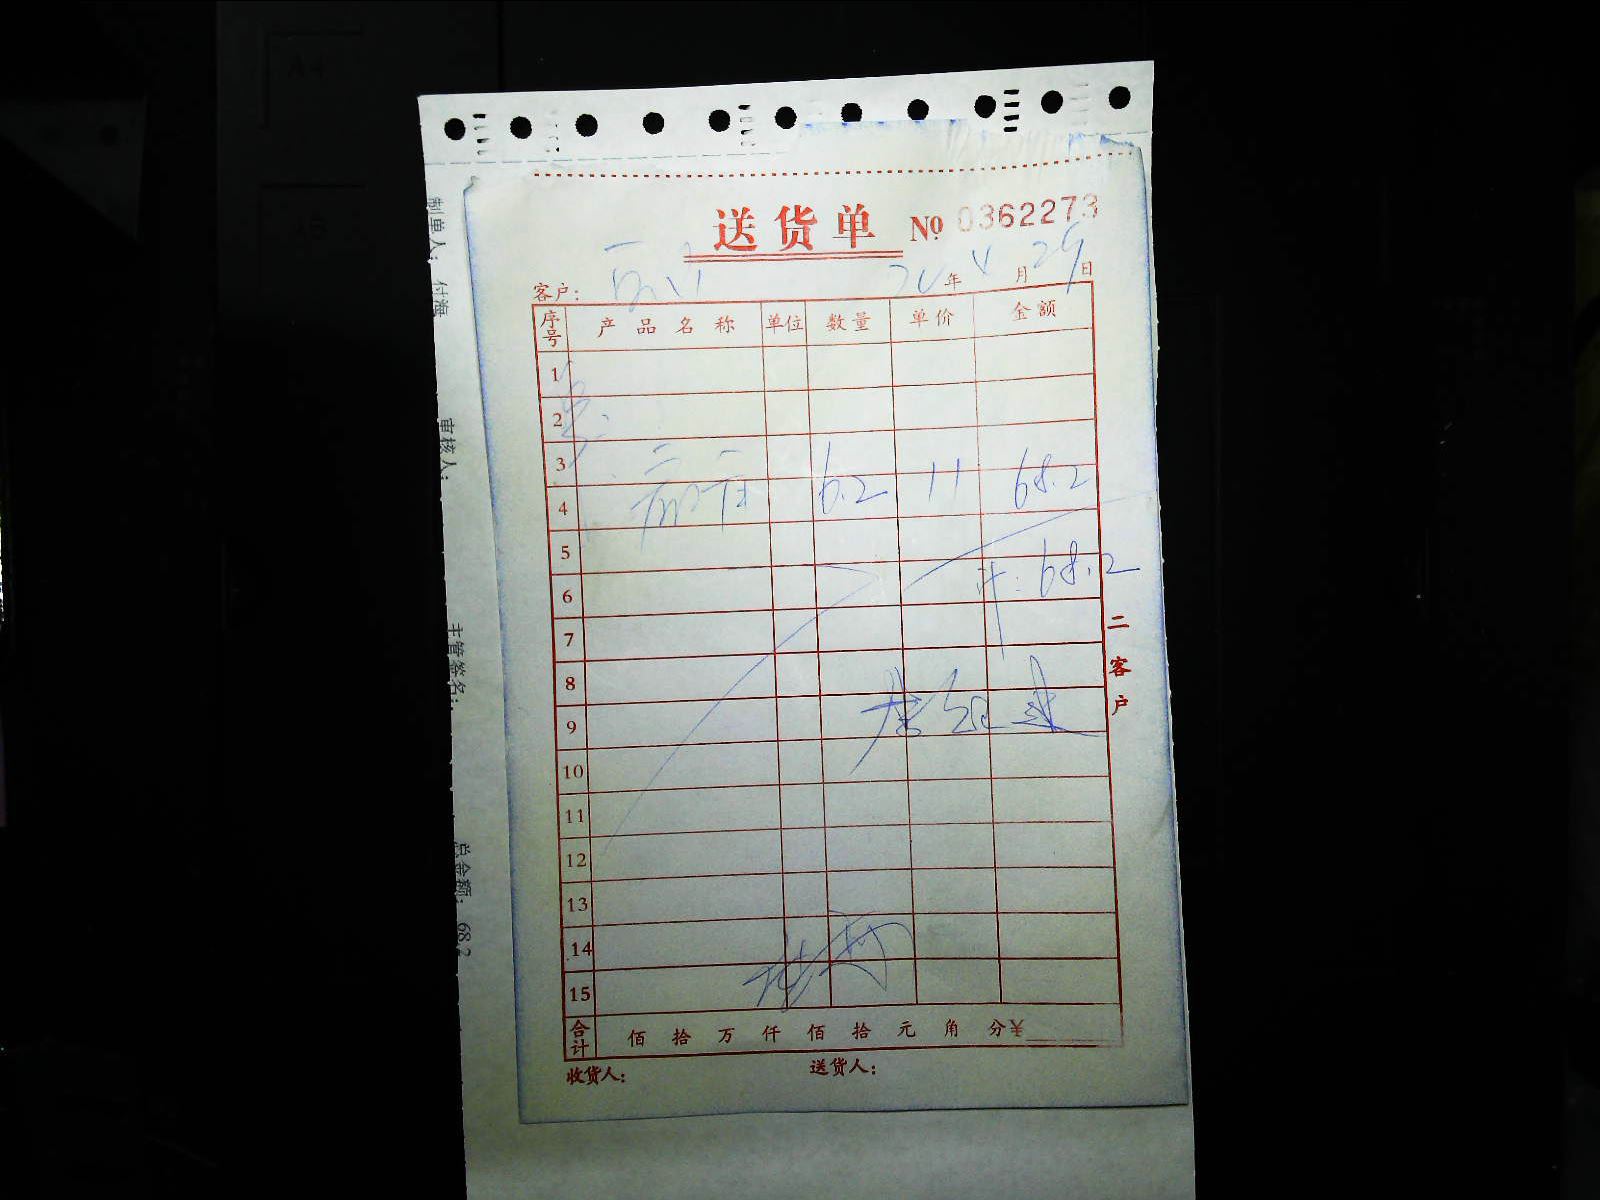 送货单 № 0362273
客户： 年 4 月 29 日
序号 产品名称 单位 数量 单价 金额
1
2
3
4 6.2 11 68.2
5
6 计: 68.2
7
8
9
10
11
12
13
14
15
合计 佰 拾 万 仟 佰 拾 元 角 分 ¥
收货人： 送货人：
二客户
制单人： 付海
审核人：
主管签名：
总金额： 68.2